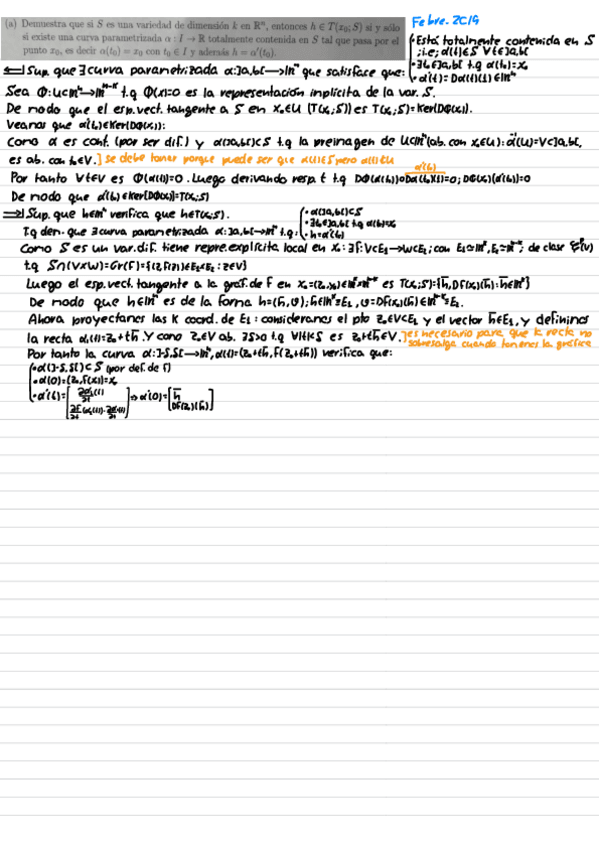 (a) Demuestra que si S es una variedad de dimensión k en Rⁿ, entonces h ∈ T(x₀; S) si y sólo
si existe una curva parametrizada α : I → R totalmente contenida en S tal que pasa por el
punto x₀, es decir α(t₀) = x₀ con t₀ ∈ I y además h = α'(t₀).
Febre. 2019
⇐ Sup. que ∃ curva parametrizada α:]a,b[→ℝⁿ que satisface que:
• Está totalmente contenida en S
; i.e; α(t)∈S ∀t∈]a,b[
• ∃t₀∈]a,b[ t.q α(t₀)=x₀
• α'(t)= Dα(t)(1)∈ℝⁿ
Sea Φ:U⊂ℝⁿ→ℝⁿ⁻ᵏ t.q Φ(x)=0 es la representación implícita de la var. S.
De modo que el esp. vect. tangente a S en x₀∈U (T(x₀;S)) es T(x₀;S)=Ker(DΦ(x₀)).
Veamos que α'(t₀)∈Ker(DΦ(x₀)):
Como α es cont. (por ser dif.) y α(]a,b[)⊂S t.q la preimagen de U⊂ℝⁿ (ab. con x₀∈U): α⁻¹(U)=V⊂]a,b[,
es ab. con t₀∈V.] se debe tomar porque puede ser que α(t)∈S pero α(t)∉U
Por tanto ∀t∈V es Φ(α(t))=0. Luego derivando resp. t t.q DΦ(α(t₀))∘Dα(t₀)(1)=0; DΦ(x₀)(α'(t₀))=0
α'(t₀)
De modo que α'(t₀)∈Ker(DΦ(x₀))=T(x₀;S)
⇒ Sup. que h∈ℝⁿ verifica que h∈T(x₀;S).
Tq dem. que ∃ curva parametrizada α:]a,b[→ℝⁿ t.q:
• α(]a,b[)⊂S
• ∃t₀∈]a,b[ t.q α(t₀)=x₀
• h=α'(t₀)
Como S es un var. dif. tiene repre. explícita local en x₀: ∃F:V⊂E₁→W⊂E₂; con E₁≅ℝᵏ, E₂≅ℝⁿ⁻ᵏ; de clase
t.q S∩(V×W)=Gr(F)={(z,F(z))∈E₁×E₂ : z∈V}
Luego el esp. vect. tangente a la graf. de F en x₀=(z₀,y₀)∈ℝᵏ×ℝⁿ⁻ᵏ es T(x₀;S)={(h̄,DF(z₀)(h̄)): h̄∈ℝᵏ}
De modo que h∈ℝⁿ es de la forma h=(h̄,v); h̄∈ℝᵏ≅E₁, v=DF(z₀)(h̄)∈ℝⁿ⁻ᵏ≅E₂.
Ahora proyectamos las k coord. de E₁: consideramos el pto z₀∈V⊂E₁ y el vector h̄∈E₁, y definimos
la recta α₁(t)=z₀+th̄. Y como z₀∈V ab. ∃δ>0 t.q ∀|t|<δ es z₀+th̄∈V.] es necesario para que la recta no
sobresalga cuando tomemos la gráfica
Por tanto la curva α:]-δ,δ[→ℝⁿ, α(t)=(z₀+th̄, F(z₀+th̄)) verifica que:
• α(]-δ,δ[)⊂S (por def. de F)
• α(0)=(z₀,F(z₀))=x₀